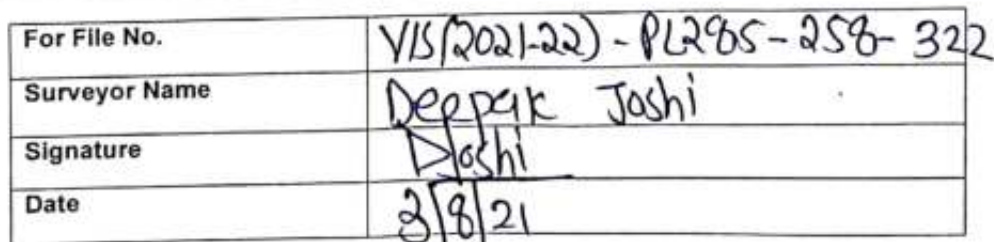 For File No. VIS(2021-22) - PL285-258-322
Surveyor Name Deepak Joshi
Signature DJoshi
Date 3/8/21